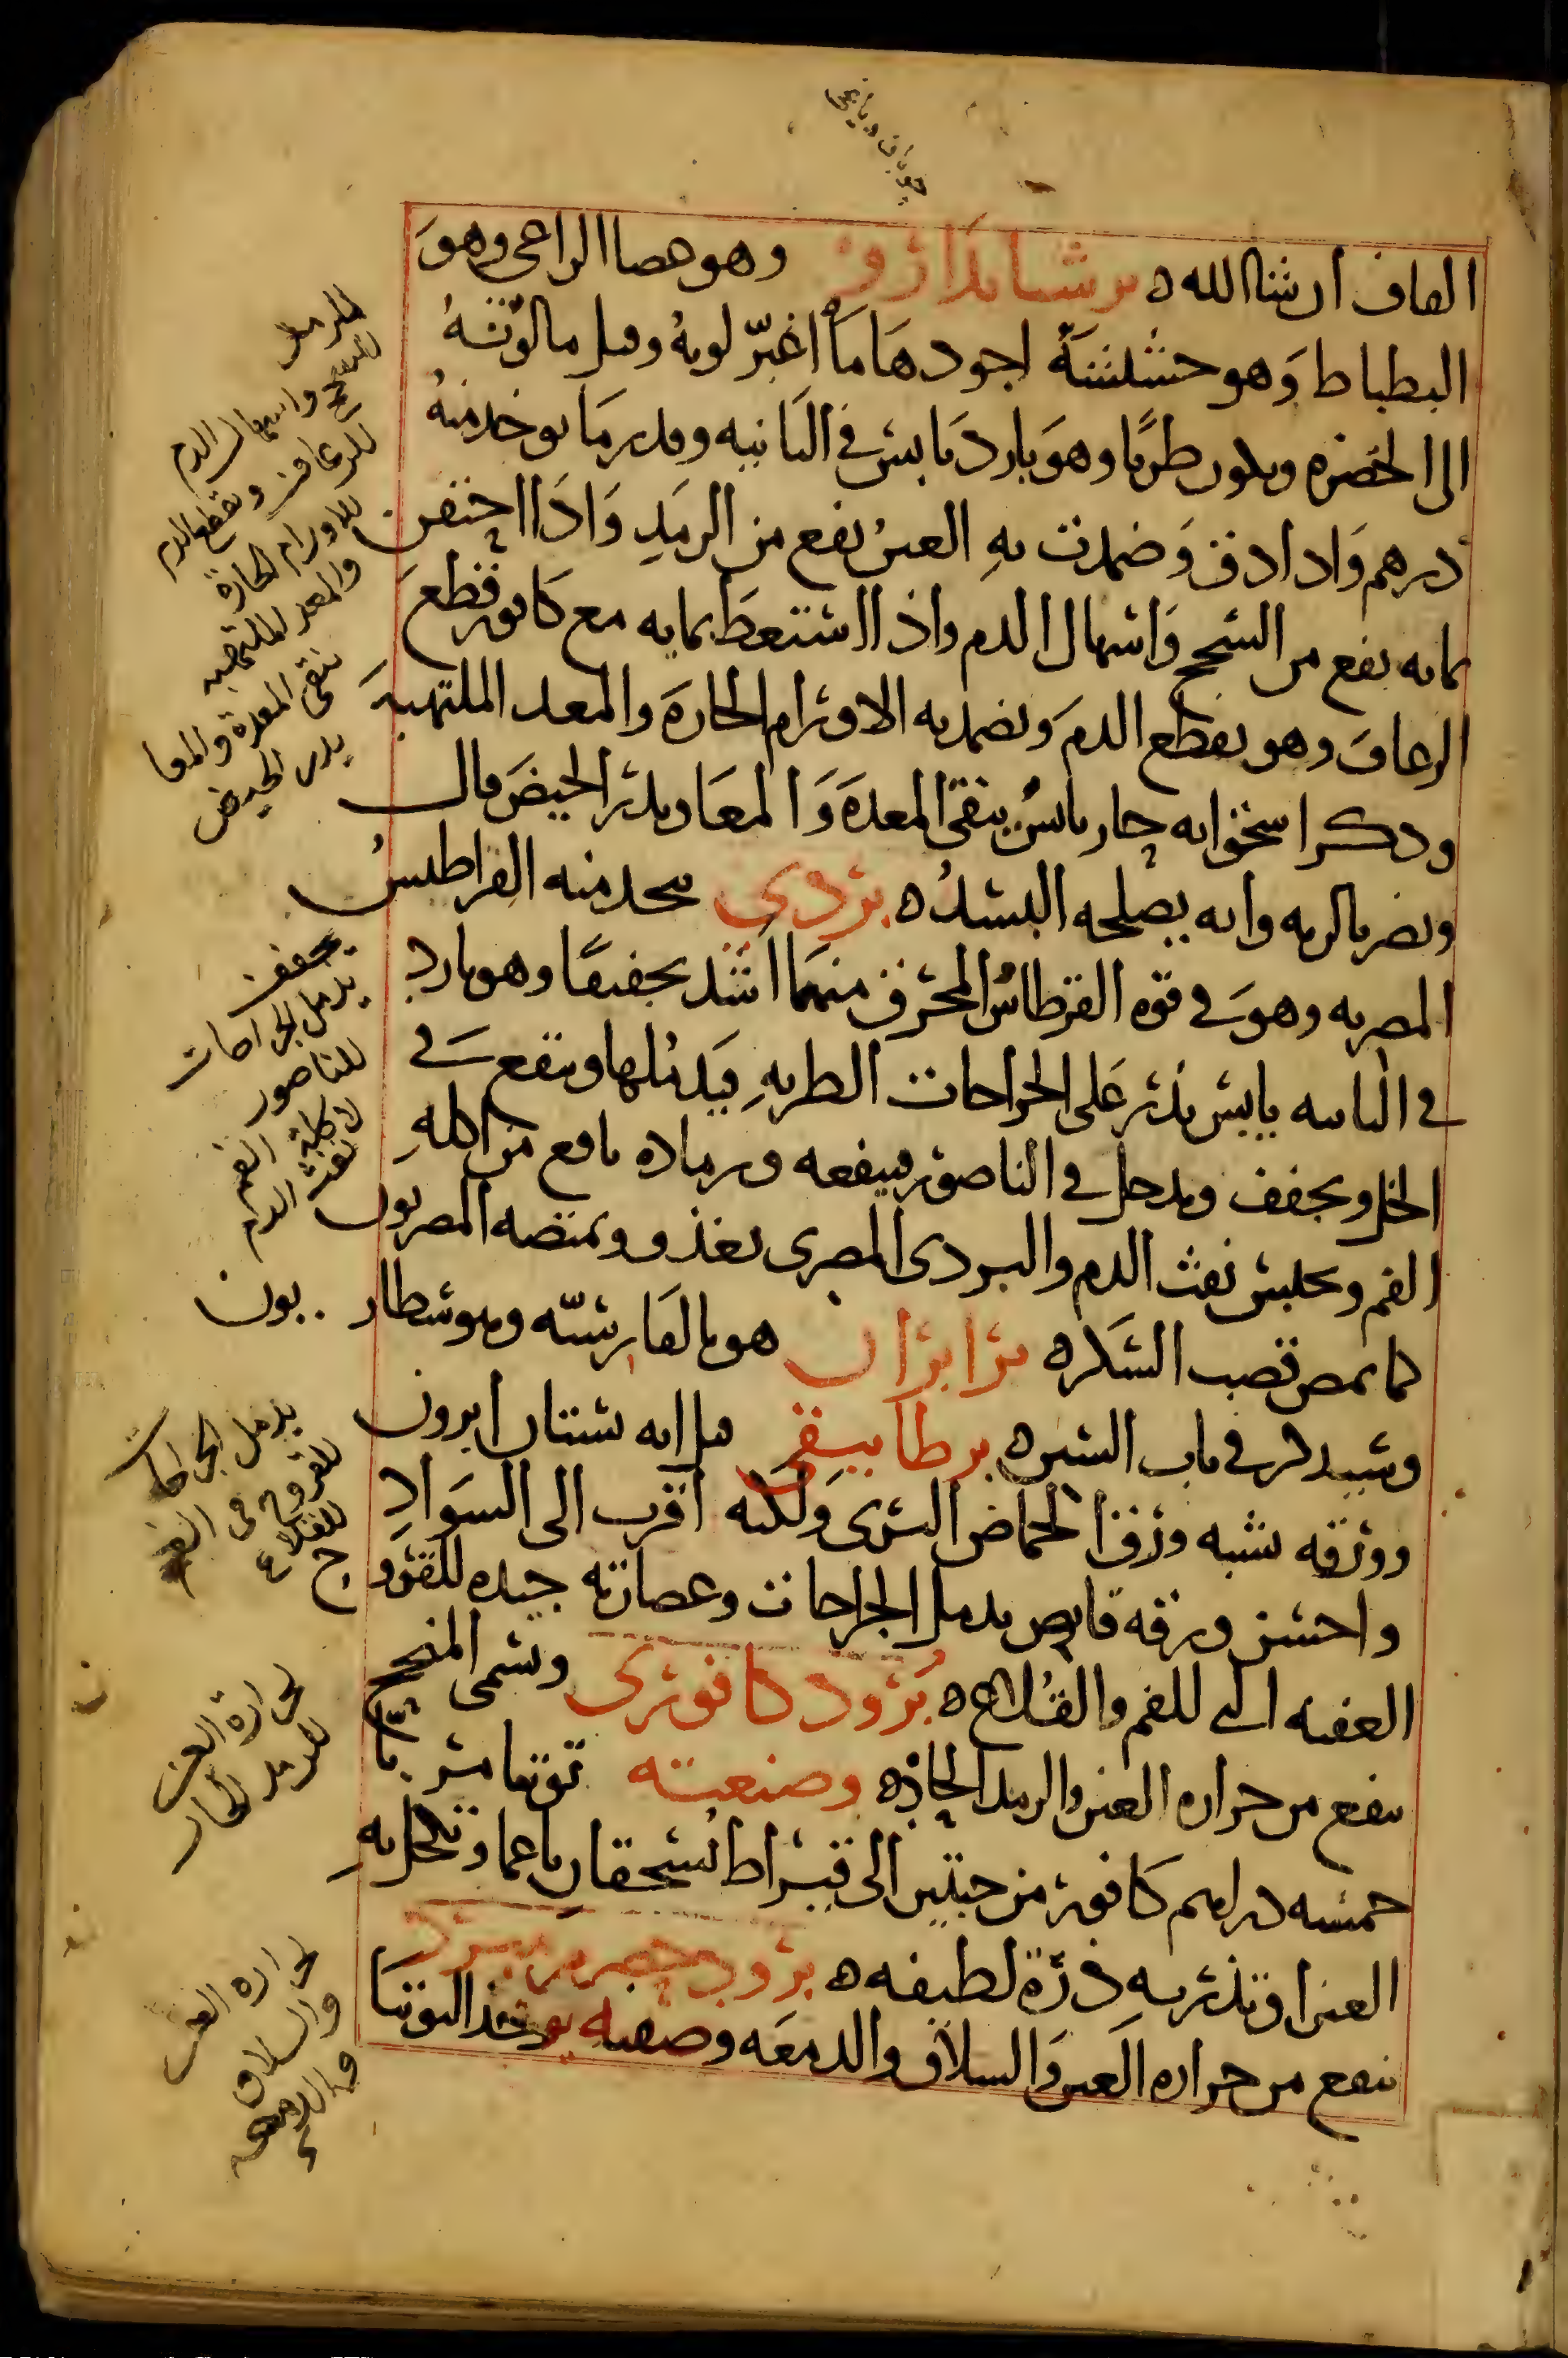 القاف ان شا الله ه برشيانداروا وهو عصا الراعى وهوَ
البطباط وَهو حشيشة اجودهَا مَا اغبرّ لونهُ وقيل مالونهُ
الى الخضره ويكون طريًا وهوَ بارد يابس فى الثانيه وقدر مَا يوخد منهُ
درهم وَاذا دق وَضمدت بهِ العين نفع من الرمَدِ وَاذَا احتقن
بمايه نفع من السحج وَاسهال الدم واذا استعطَ بمايه مع كافور قطعَ
الرعافَ وهو يقطع الدمَ ويضمد به الاورام الحارَة والمعد الملتهبَة
ودكر اسحق انه حار يابس ينقى المعدَة وَالمعَا ويدر الحيضَ قال
ويضر بالريه وانه يصلحه البسد ه بردى يتخد منه القراطيس
المصريه وهوَ فى قوه القرطاس المحرق منهمَا اشد تجفيفًا وهو بارد
فى الثانيه يابس يذر عَلى الجراحات الطريهِ فيَدملها وينقع فى
الخل ويجفف ويدخل فى الناصور فينفعه ورماده نافع من اكلهِ
الفم ويحبس نفث الدم والبردى المصرى يغذو ويمتصه المصريون
كما يمص قصب السكر ه برابران هو بالفارسيّه وبوشطار . بون
وسيدكر فى باب السين ه برطانيقى قيل انه بستان ابرون
وورقه يشبه ورق الحماض البرى وَلكنه اقرب الى السوَادِ
واخشن ورقه قابض يدمل الجراحات وعصارته جيده للقرو
العفنه التى للفم والقلاع ه برود كافورى ويسمى المفجح
ينفع من حراره العين والرمد الحاده وصنعته توتيا مربّا
خمسه دراهم كافور من حبتين الى قيراط يسحقان ناعما وتكحل بهِ
العين او تذر بهِ ذرّة لطيفه ه برود حصرم مبرد
ينفع من حراره العين وَالسلاق والدمعَه وصفته يوخد التوتيَا
للرمد
للسحج واسهال الدم
للرعاف وتقطع الدم
للاورام الحارة
والمعد الملتهبه
ينقى المعدة والمعا
يدر الحيض
يجفف
يدمل الجراحات
للناصور
لاكلة الفم
لنفث الدم
يدمل الجراحات
للقروح فى الفم
للقلاع
ح
لحرارة العين
للرمد الحار
لحراره العين
والسلاق
والدمعه